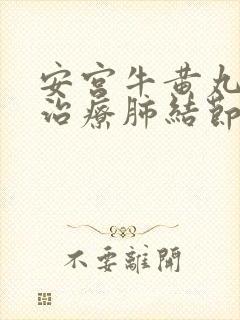 安宫牛黄丸
治療肺結節
不要離開